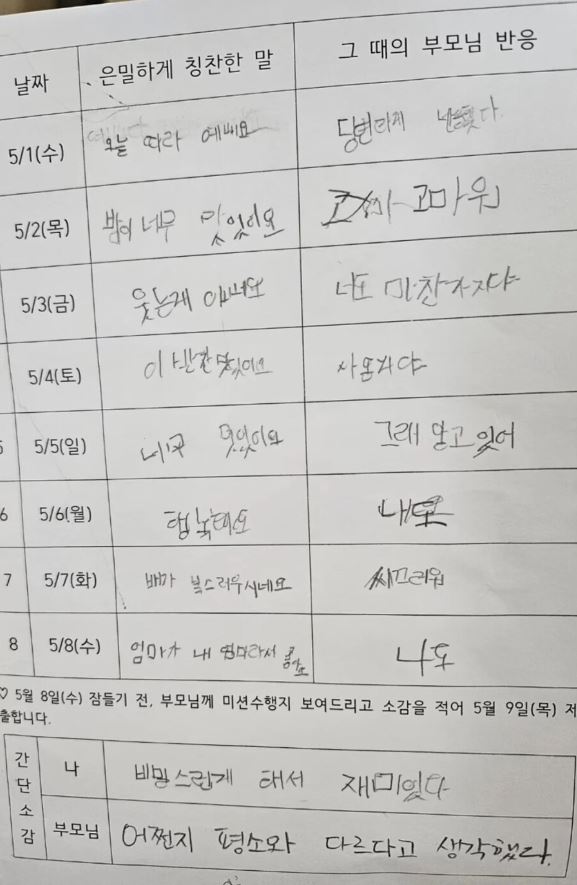 날짜 은밀하게 칭찬한 말 그 때의 부모님 반응
5/1(수) 오늘 따라 예뻐요
5/2(목) 밥이 너무 맛있어요 고마워
5/3(금) 웃는게 너도 마찬가지야
5/4(토) 이 반찬 맛있어요
5/5(일) 그래 알고 있어
6 5/6(월) 행복해요 나도
7 5/7(화) 배가 복스러우시네요 씨끄러워
8 5/8(수) 엄마가 내 엄마라서 좋아요 나도
♡ 5월 8일(수) 잠들기 전, 부모님께 미션수행지 보여드리고 소감을 적어 5월 9일(목) 제
출합니다.
간단소감 나 비밀스런게 해서 재미있다
부모님 어쩐지 평소와 다르다고 생각했다.